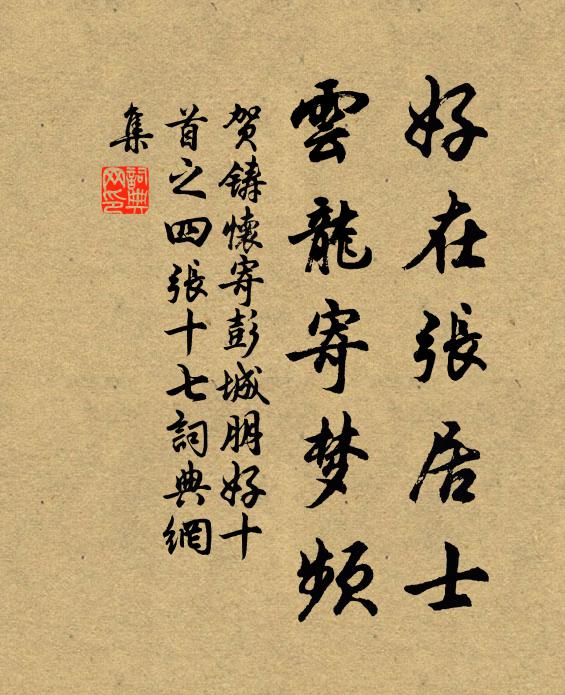 好在張居士
雲龍寄梦頻
贺鑄懷寄彭城朋好十
首之四張十七詞典網
集
詞典
网印